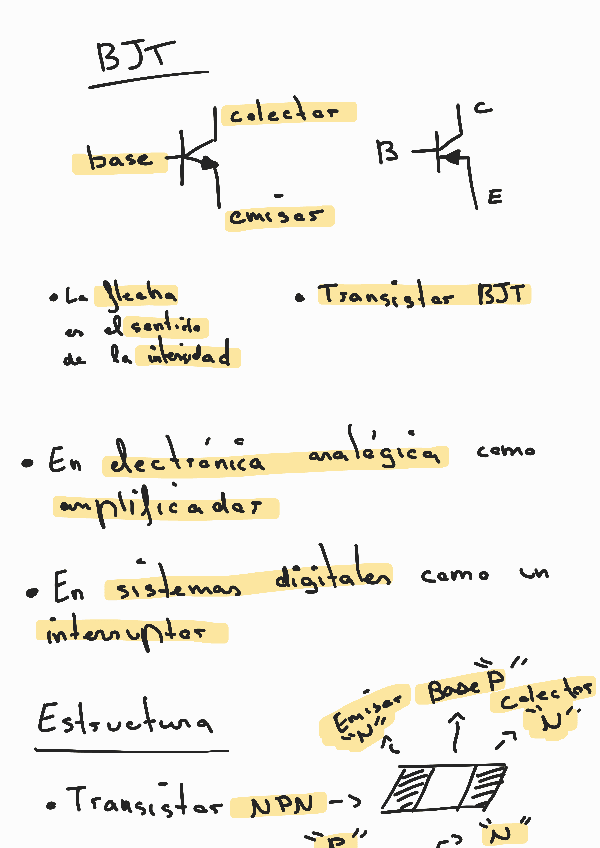 BJT
colector
base
emisor
C
B
E
• La flecha
es el sentido
de la intensidad
• Transistor BJT
• En electrónica analógica como
amplificador
• En sistemas digitales como un
interruptor
Estructura
Emisor "N"
Base "P"
Colector "N"
• Transistor NPN ->
"P"
"N"